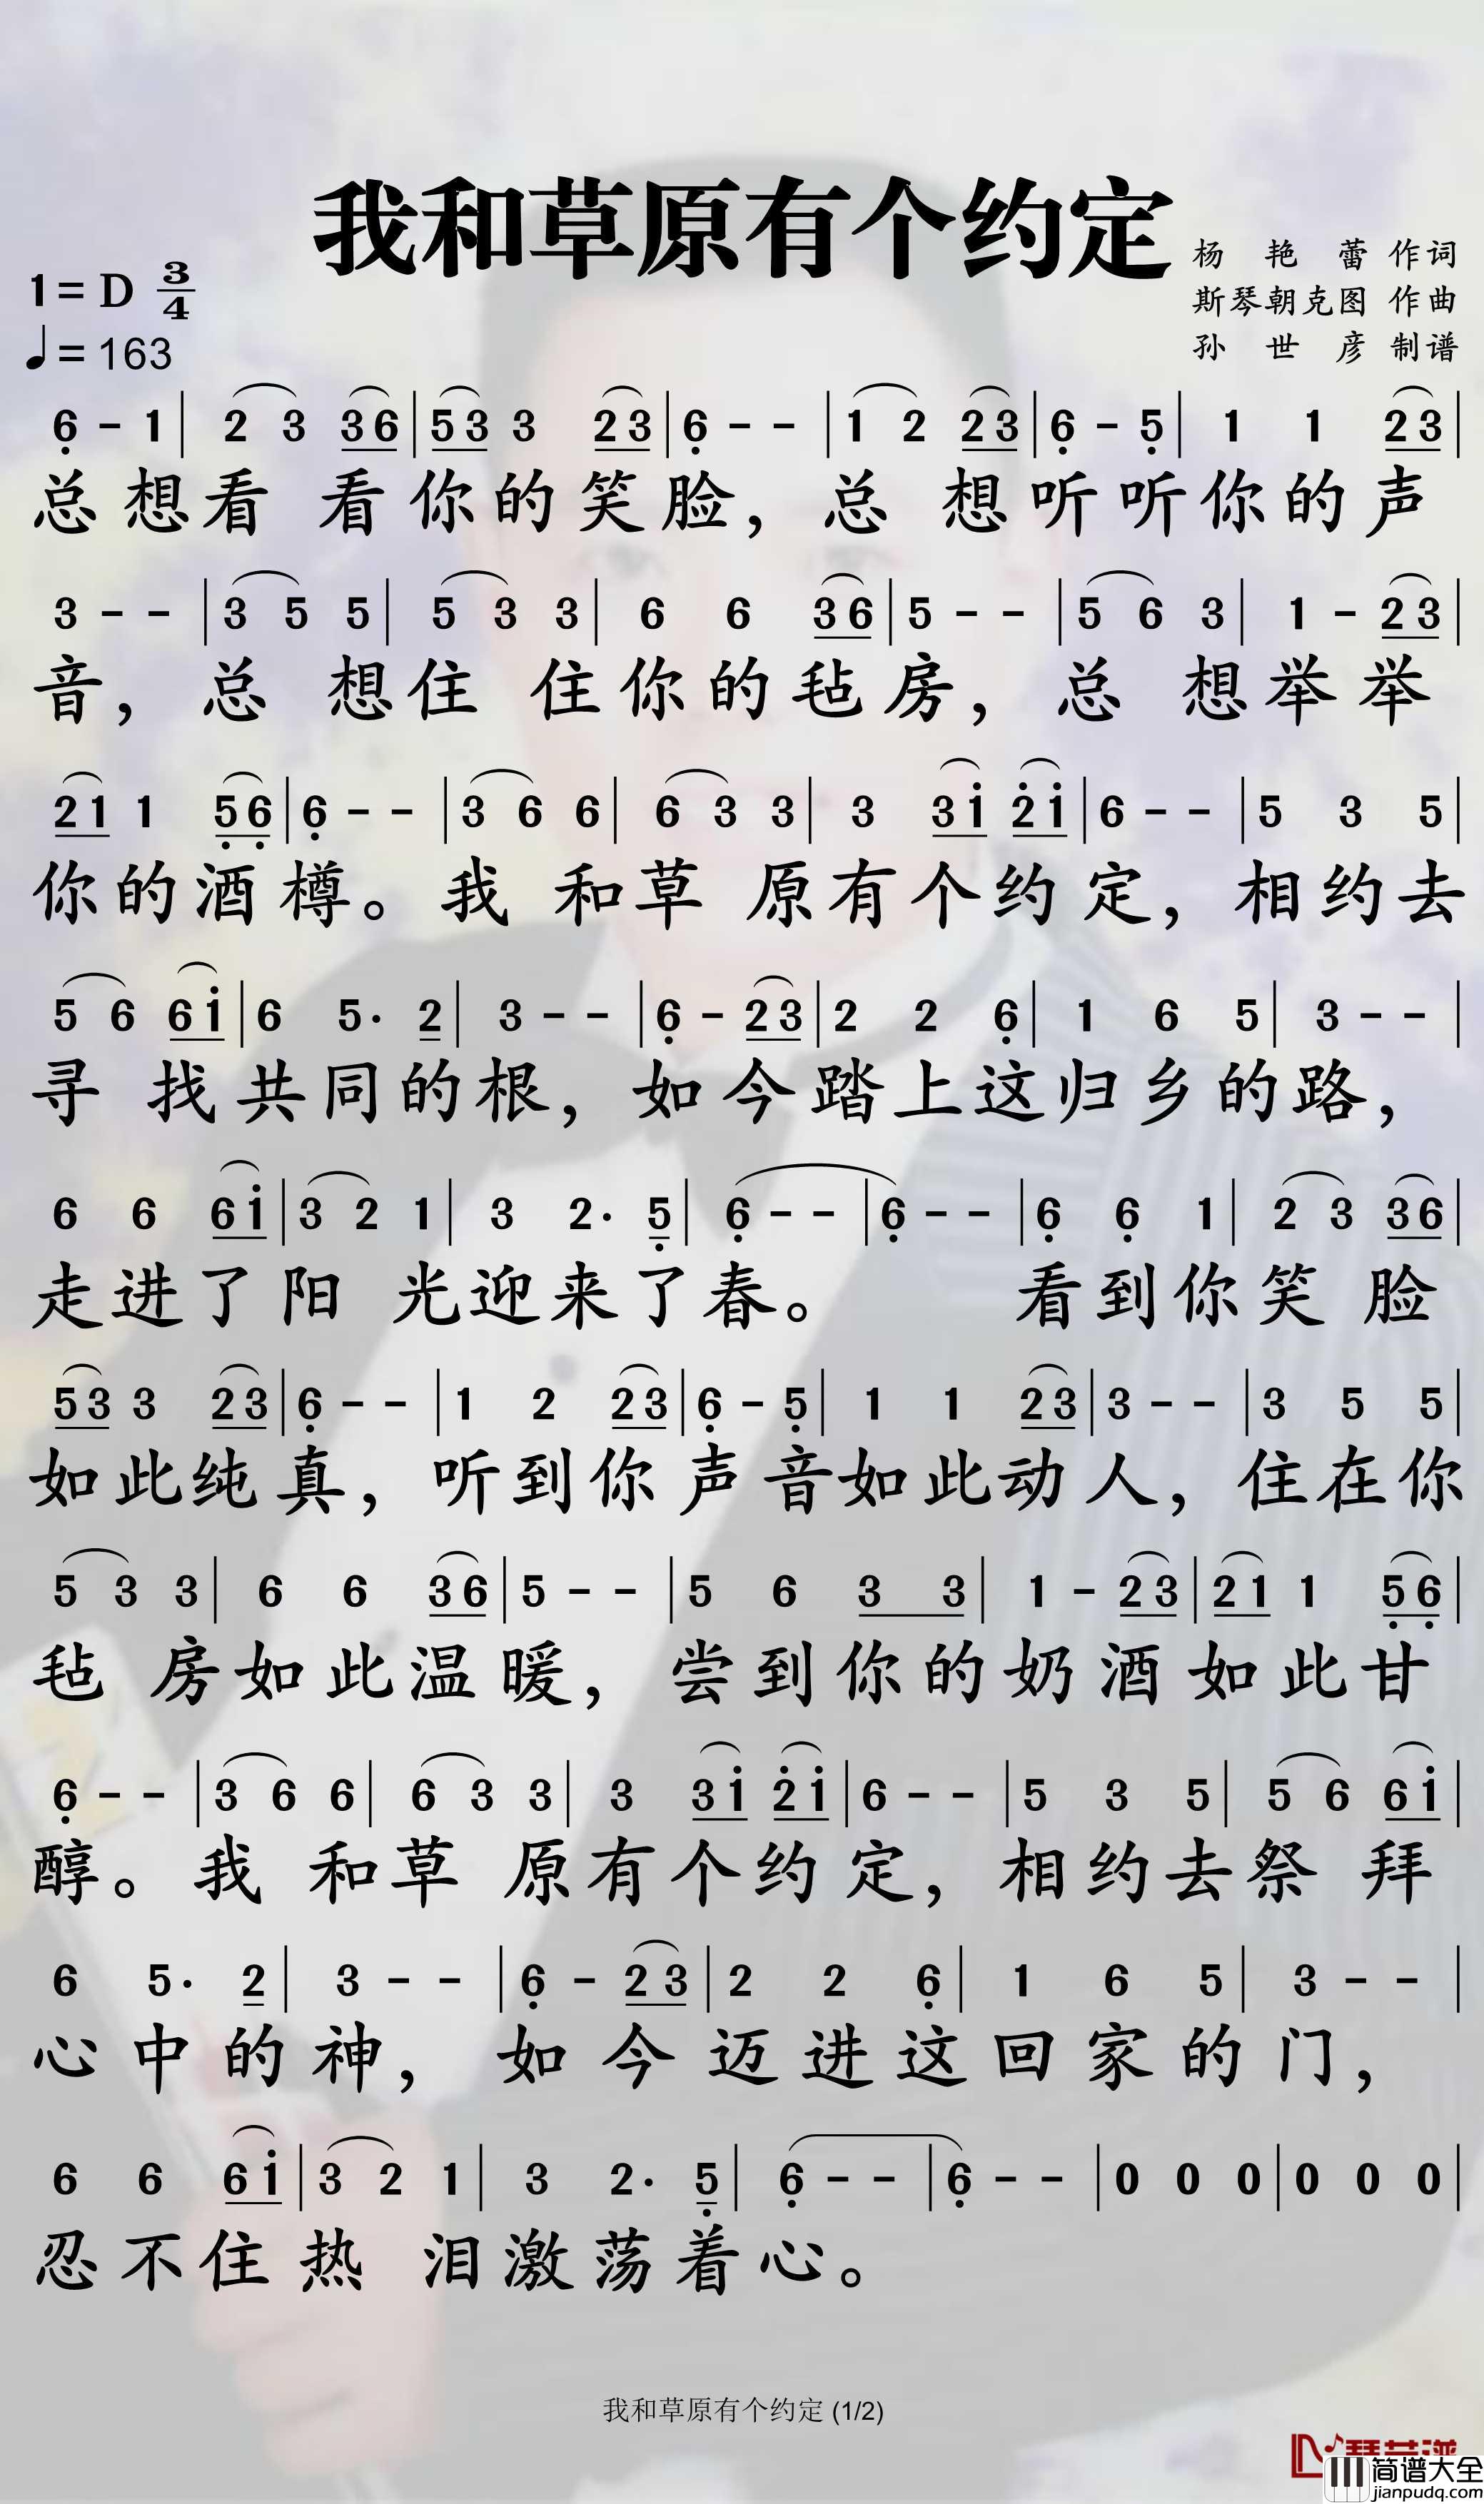 我和草原有个约定
杨 艳 蕾 作词
1=D 3/4
斯琴朝克图 作曲
♩=163
孙 世 彦 制谱
6̣ - 1 | 2 3 3 6 | 5 3 3 2 3 | 6̣ - - | 1 2 2 3 | 6̣ - 5̣ | 1 1 2 3 |
总想看 看你的笑脸，总 想听听你的声
3 - - | 3 5 5 | 5 3 3 | 6 6 3 6 | 5 - - | 5 6 3 | 1 - 2 3 |
音，总 想住 住你的毡房，总 想举举
2 1 1 5̣ 6̣ | 6̣ - - | 3 6 6 | 6 3 3 | 3 3 1̇ 2̇ 1̇ | 6 - - | 5 3 5 |
你的酒樽。我 和草 原有个约定，相约去
5 6 6 1̇ | 6 5. 2 | 3 - - | 6̣ - 2 3 | 2 2 6̣ | 1 6 5 | 3 - - |
寻 找共同的根，如今踏上这归乡的路，
6 6 6 1̇ | 3 2 1 | 3 2. 5̣ | 6̣ - - | 6̣ - - | 6̣ 6̣ 1 | 2 3 3 6 |
走进了阳 光迎来了春。 看到你笑 脸
5 3 3 2 3 | 6̣ - - | 1 2 2 3 | 6̣ - 5̣ | 1 1 2 3 | 3 - - | 3 5 5 |
如此纯真，听到你声音如此动人，住在你
5 3 3 | 6 6 3 6 | 5 - - | 5 6 3 3 | 1 - 2 3 | 2 1 1 5̣ 6̣ |
毡 房如此温暖，尝到你的奶酒如此甘
6̣ - - | 3 6 6 | 6 3 3 | 3 3 1̇ 2̇ 1̇ | 6 - - | 5 3 5 | 5 6 6 1̇ |
醇。我 和草 原有个约定，相约去祭 拜
6 5. 2 | 3 - - | 6̣ - 2 3 | 2 2 6̣ | 1 6 5 | 3 - - |
心中的神，如今迈进这回家的门，
6 6 6 1̇ | 3 2 1 | 3 2. 5̣ | 6̣ - - | 6̣ - - | 0 0 0 | 0 0 0 |
忍不住热 泪激荡着心。
我和草原有个约定 (1/2)
简谱大全
jianpudq.com